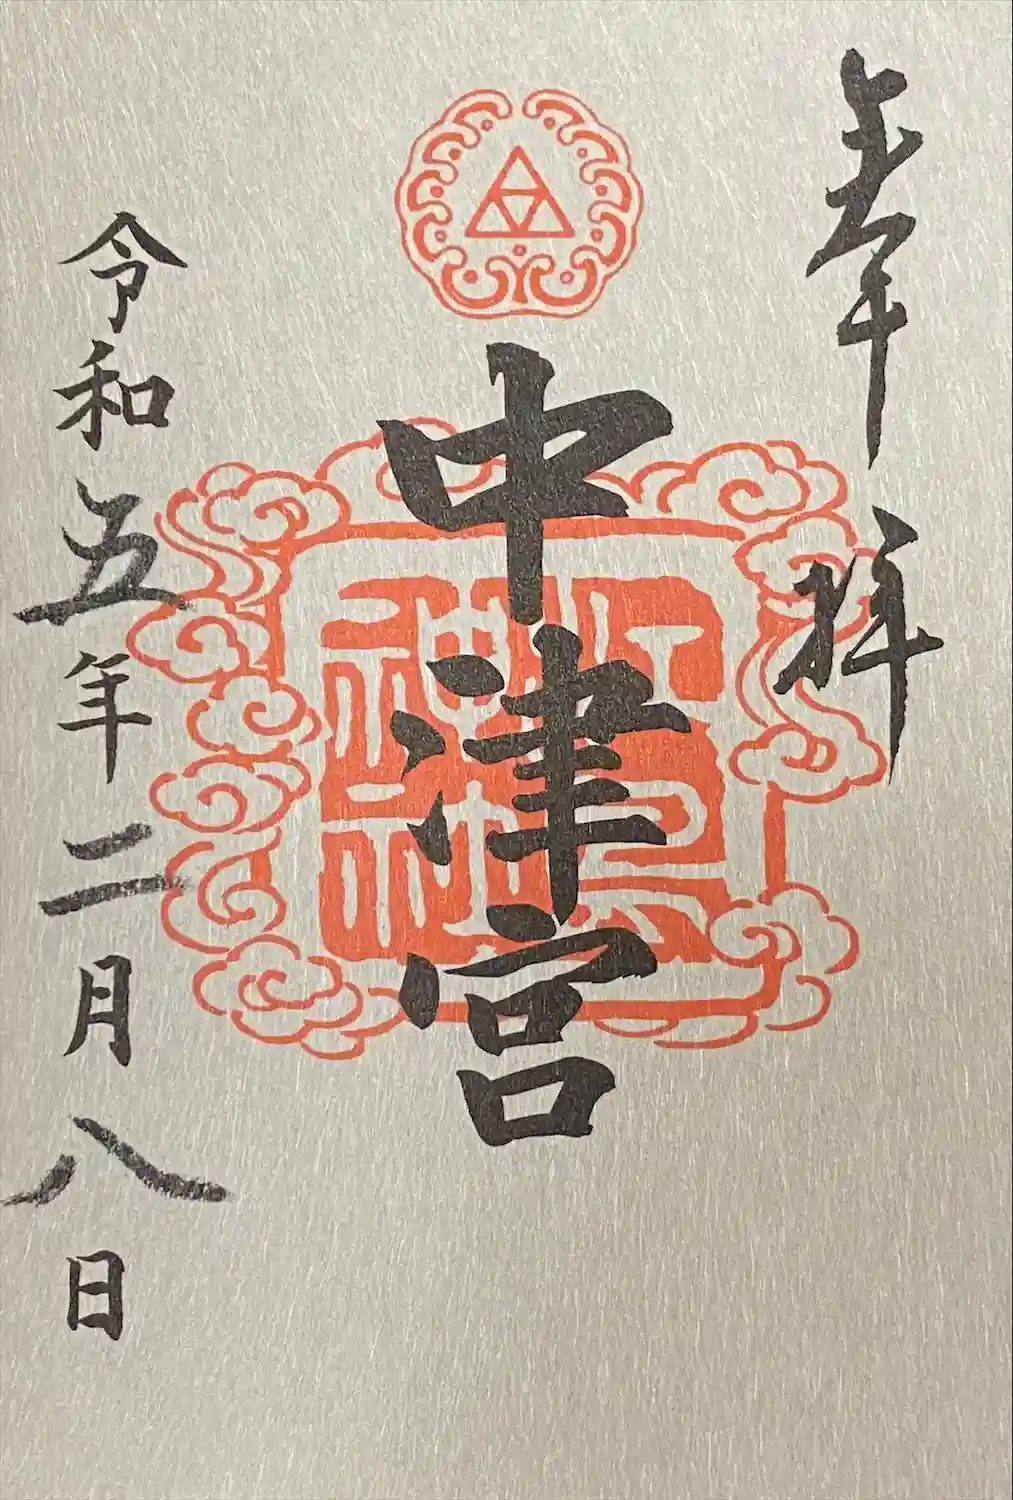 奉拝
中津宮
令和五年二月八日